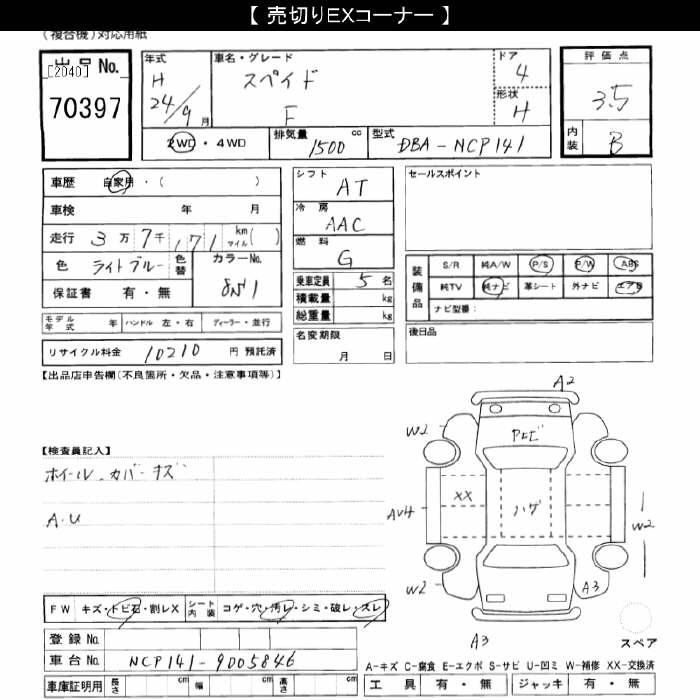 【 売切りEXコーナー 】
(複合機)対応用紙
出品No.
[2040]
70397
年式
H
24/9月
車名・グレード
スペイド
F
ドア
4
形状
H
評価点
3.5
内装
B
2WD・4WD
排気量 1500 cc
型式 DBA-NCP141
車歴 自家用・( )
車検 年 月
走行 3万7千171 km マイル( )
色 ライトブルー 色替 カラーNo. 8S1
保証書 有・無
モデル年式 年 ハンドル 左・右 ディーラー・並行
リサイクル料金 10210 円 預託済
シフト AT
冷房 AAC
燃料 G
乗車定員 5 名
積載量 kg
総重量 kg
名変期限
月 日
セールスポイント
装備品
S/R 純A/W P/S P/W ABS
純TV 純ナビ 革シート 外ナビ エアB
ナビ型番:
後日品
【出品店申告欄(不良箇所・欠品・注意事項等)】
【検査員記入】
ホイールカバーキズ
A.U
A2
W2
P.トビ
AU4
XX
ハゲ
W2
W2
A3
A3
スペア
FW キズ・トビ石・割レX シート内装 コゲ・穴・汚レ・シミ・破レ・スレ
登録No.
車台No. NCP141-9005846
車庫証明用 長さ cm 幅 cm 高さ cm
A-キズ C-腐食 E-エクボ S-サビ U-凹ミ W-補修 XX-交換済
工具 有・無 ジャッキ 有・無